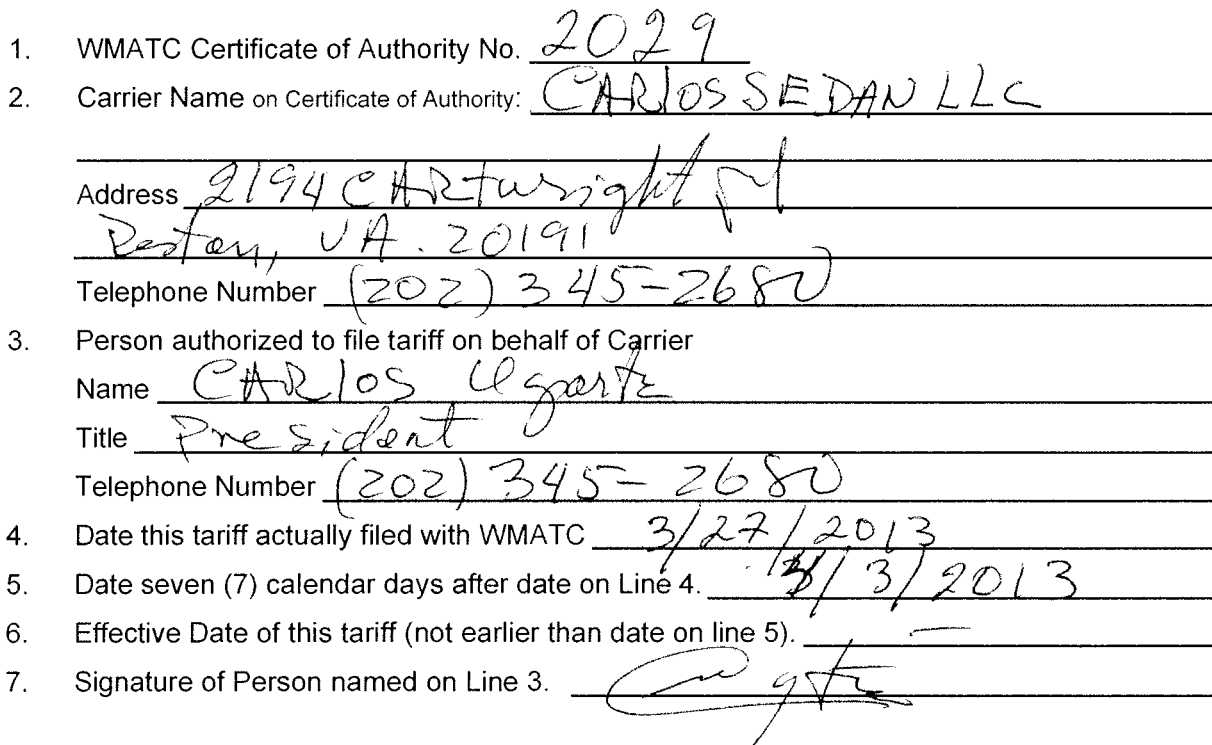 1. WMATC Certificate of Authority No. 2029
2. Carrier Name on Certificate of Authority: CARlOS SEDAN LLC
Address 2194 CARTwright pl
Reston, VA. 20191
Telephone Number (202) 345-2680
3. Person authorized to file tariff on behalf of Carrier
Name CARlOS Ugarte
Title President
Telephone Number (202) 345-2680
4. Date this tariff actually filed with WMATC 3/27/2013
5. Date seven (7) calendar days after date on Line 4. /3/2013
6. Effective Date of this tariff (not earlier than date on line 5). —
7. Signature of Person named on Line 3.